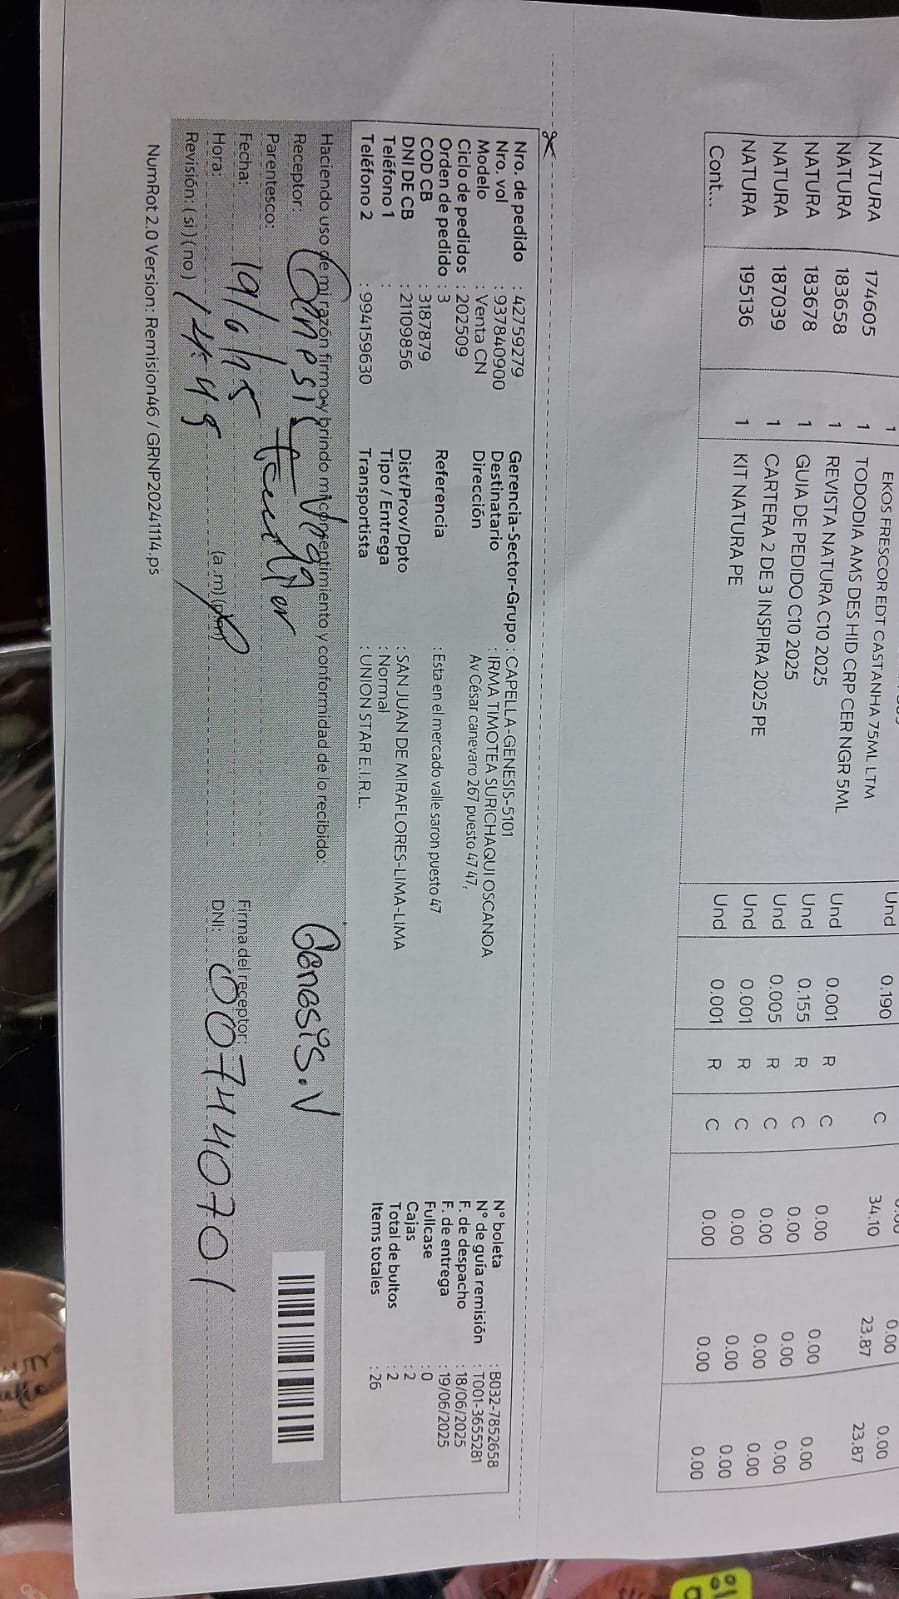 1 EKOS FRESCOR EDT CASTANHA 75ML LTM Und 0.190 C 34.10 0.00 0.00
NATURA 174605 1 TODODIA AMS DES HID CRP CER NGR 5ML 23.87 23.87
NATURA 183658 1 REVISTA NATURA C10 2025 Und 0.001 R C 0.00
NATURA 183678 1 GUIA DE PEDIDO C10 2025 Und 0.155 R C 0.00 0.00 0.00
NATURA 187039 1 CARTERA 2 DE 3 INSPIRA 2025 PE Und 0.005 R C 0.00 0.00 0.00
NATURA 195136 1 KIT NATURA PE Und 0.001 R C 0.00 0.00 0.00
Cont... Und 0.001 R C 0.00 0.00 0.00
Nro. de pedido : 42759279 Gerencia-Sector-Grupo : CAPELLA-GENESIS-5101 N° boleta : B032-7852658
Nro. vol : 937840900 Destinatario : IRMA TIMOTEA SURICHAQUI OSCANOA N° de guía remisión : T001-3655281
Modelo : Venta CN Dirección Av César canevaro 267 puesto 47 47, F. de despacho : 18/06/2025
Ciclo de pedidos : 202509 F. de entrega : 19/06/2025
Orden de pedido : 3 Referencia : Esta en el mercado valle saron puesto 47 Fullcase : 0
COD CB : 3187879 Cajas : 2
DNI DE CB : 21109856 Dist/Prov/Dpto : SAN JUAN DE MIRAFLORES-LIMA-LIMA Total de bultos : 2
Teléfono 1 : Tipo / Entrega : Normal Items totales : 26
Teléfono 2 : 994159630 Transportista : UNION STAR E.I.R.L.
Haciendo uso de mi razón firmo y brindo mi consentimiento y conformidad de lo recibido:
Receptor: Genesis Genesis.V
Parentesco:
Fecha: Firma del receptor:
Hora: 14:49 (a.m) (p.m) DNI: 007440701
Revisión: ( si ) ( no )
NumRot 2.0 Version: Remision46 / GRNP20241114.ps